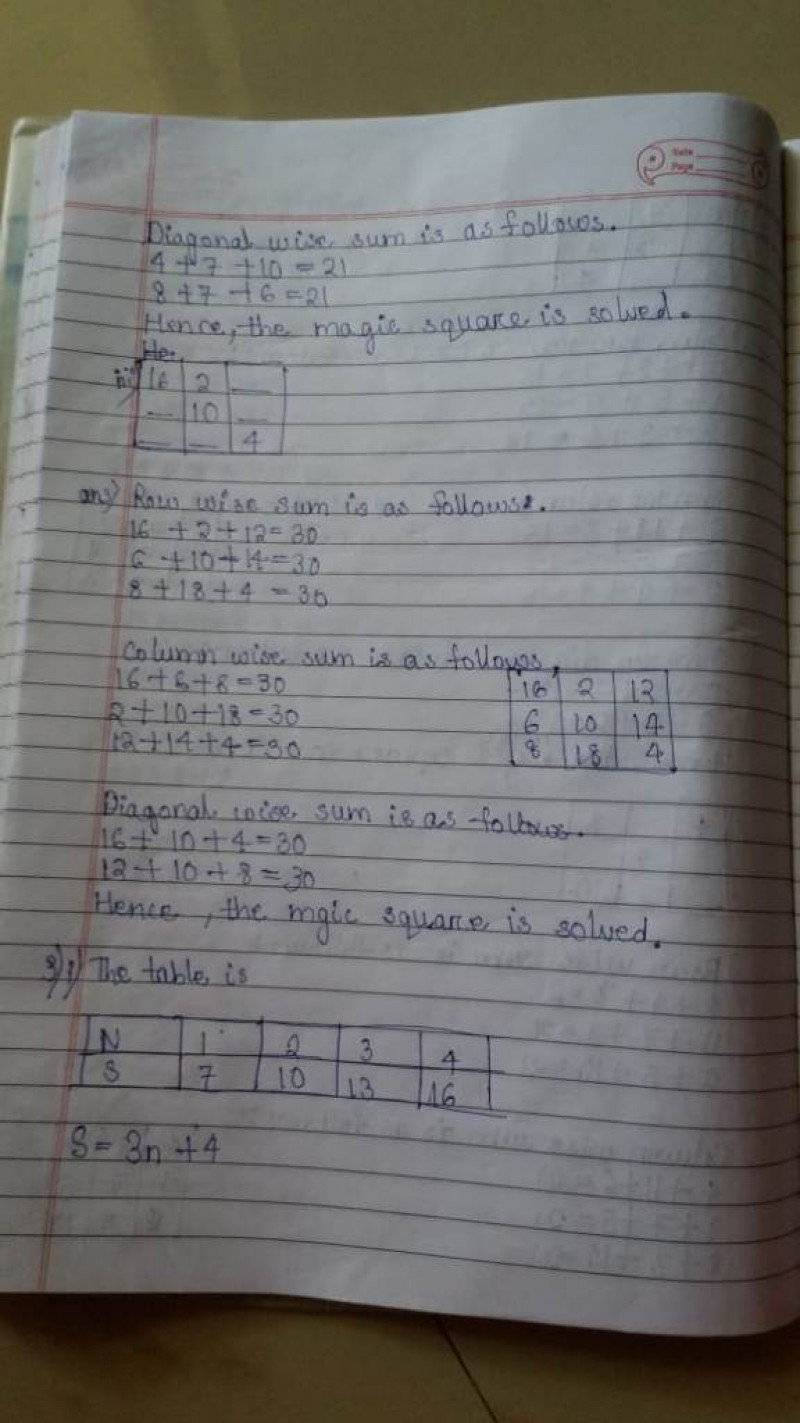 Date
Page
Diagonal wise sum is as follows.
4+7+10=21
8+7+6=21
Hence, the magic square is solved.
He.
iii) 16 2 —
— 10 —
— — 4
ans) Row wise sum is as follows.
16 +2+12=30
6 +10+14=30
8+18+4 =30
Column wise sum is as follows.
16+6+8=30
2+10+18=30
12+14+4=30
16 2 12
6 10 14
8 18 4
Diagonal wise sum is as follows.
16+ 10+4=30
12+10+8=30
Hence, the mgic square is solved.
3) i) The table is
N 1 2 3 4
S 7 10 13 16
S= 3n +4